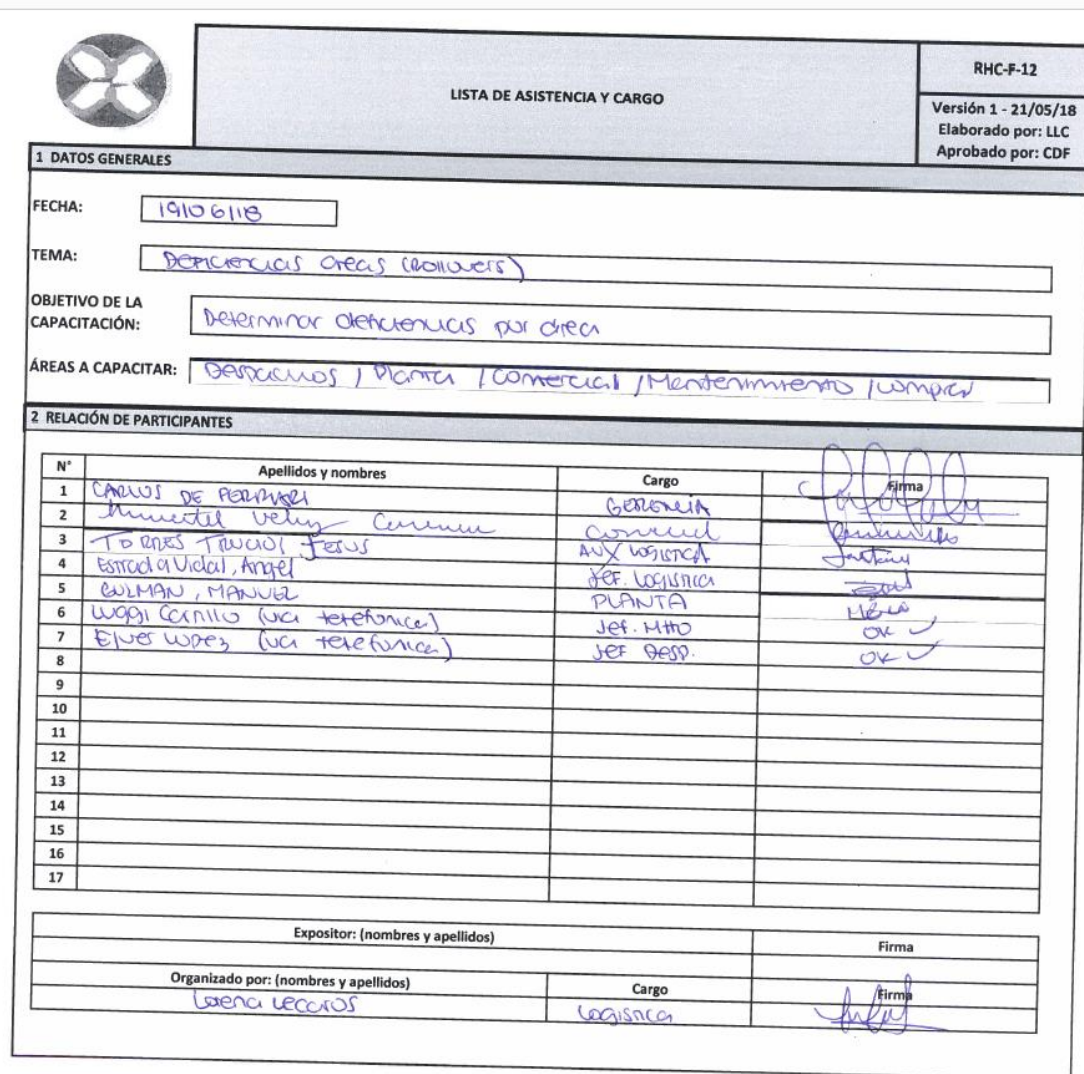 LISTA DE ASISTENCIA Y CARGO
RHC-F-12
Versión 1 - 21/05/18
Elaborado por: LLC
Aprobado por: CDF
1 DATOS GENERALES
FECHA: 19/06/18
TEMA: Deficiencias areas (Rollovers)
OBJETIVO DE LA
CAPACITACIÓN: Determinar deficiencias por area
ÁREAS A CAPACITAR: Despachos / Planta / Comercial / Mantenimiento / compras
2 RELACIÓN DE PARTICIPANTES
N° Apellidos y nombres Cargo Firma
1 CARLOS DE FERRARI GERENCIA
2
3 TORRES TRUCIOS Jesus AUX LOGISTICA
4 Estrada Vidal, Angel Jef. Logistica
5 GUZMAN, MANUEL PLANTA
6 Luggi Carrillo (via telefonica) Jef. Mtto OK ✓
7 Elves Lopez (via telefonica) Jef Desp. OK ✓
8
9
10
11
12
13
14
15
16
17
Expositor: (nombres y apellidos) Firma
Organizado por: (nombres y apellidos) Cargo Firma
Lorena Leccaros Logistica